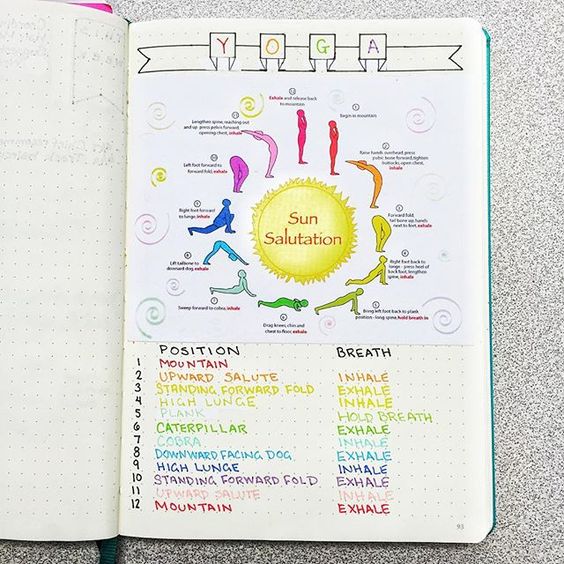 YOGA
12
Exhale and release back
to mountain
1
Begin in mountain
11
Lengthen spine, reaching out
and up press pelvis forward,
opening chest, inhale
2
Raise hands overhead, press
pubic bone forward, tighten
buttocks, open chest,
inhale
10
Left foot forward to
forward fold, exhale
3
Forward fold,
tail bone up, hands
next to feet, exhale
9
Right foot forward
to lunge, inhale
4
Right foot back to
lunge - press heel of
back foot, lengthen
spine, inhale
8
Lift tailbone to
downward dog, exhale
7
Sweep forward to cobra, inhale
6
Drag knees, chin and
chest to floor, exhale
5
Bring left foot back to plank
position - long spine, hold breath in
Sun
Salutation
POSITION BREATH
1 MOUNTAIN
2 UPWARD SALUTE INHALE
3 STANDING FORWARD FOLD EXHALE
4 HIGH LUNGE INHALE
5 PLANK HOLD BREATH
6 CATERPILLAR EXHALE
7 COBRA INHALE
8 DOWNWARD FACING DOG EXHALE
9 HIGH LUNGE INHALE
10 STANDING FORWARD FOLD EXHALE
11 UPWARD SALUTE INHALE
12 MOUNTAIN EXHALE
93